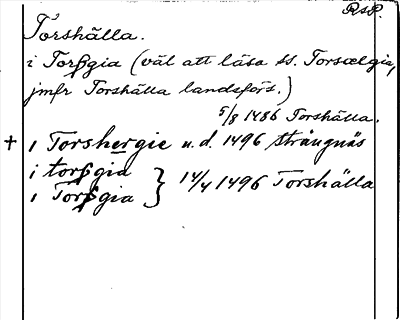 RsP.
Torshälla.
i Torßgia (väl att läsa ss. Torsælgia,
jmfr Torshälla landsförs.)
5/8 1486 Torshälla.
+ i Torshergie u.d. 1496 Strängnäs
i torßgia
i Torßgia } 14/4 1496 Torshälla